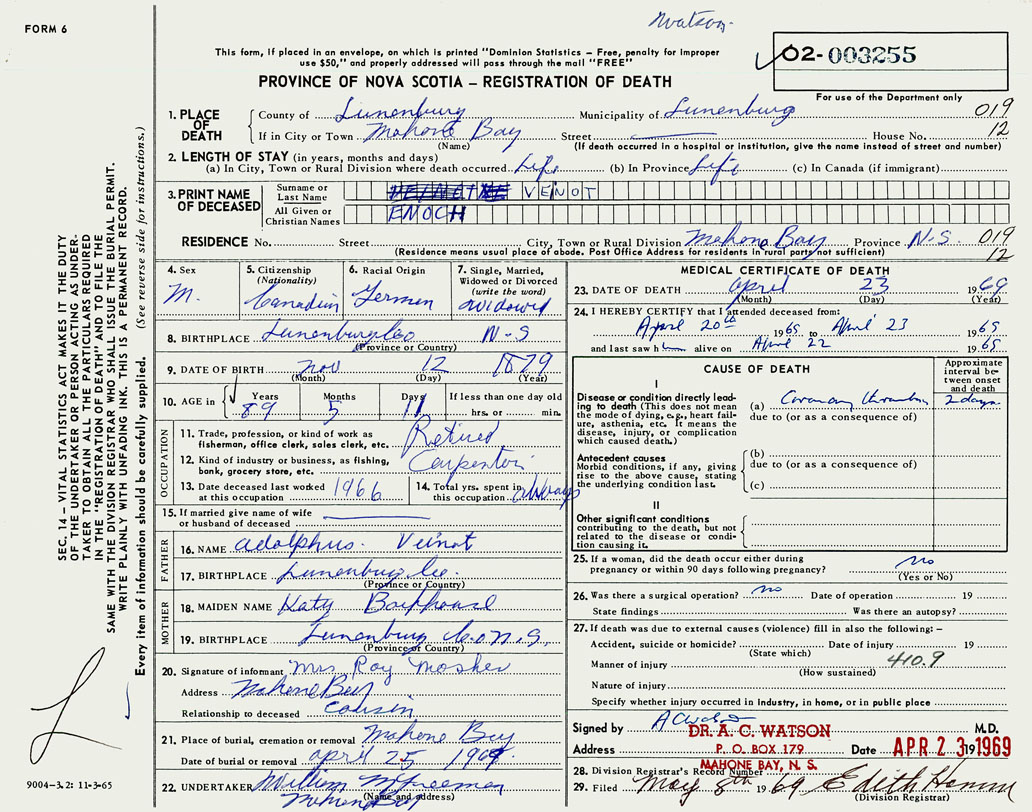 FORM 6
Watson
This form, if placed in an envelope, on which is printed "Dominion Statistics – Free, penalty for improper
use $50," and properly addressed will pass through the mail "FREE"
PROVINCE OF NOVA SCOTIA – REGISTRATION OF DEATH
02-003255
For use of the Department only
1. PLACE OF DEATH
County of Lunenburg Municipality of Lunenburg 019
If in City or Town Mahone Bay Street House No. 12
(Name) (If death occurred in a hospital or institution, give the name instead of street and number)
2. LENGTH OF STAY (in years, months and days)
(a) In City, Town or Rural Division where death occurred Life (b) In Province Life (c) In Canada (if immigrant)
3. PRINT NAME OF DECEASED
Surname or Last Name VEINOT
All Given or Christian Names ENOCH
RESIDENCE No. Street City, Town or Rural Division Mahone Bay Province N.S. 019
(Residence means usual place of abode. Post Office Address for residents in rural parts not sufficient) 12
4. Sex
M.
5. Citizenship
(Nationality)
Canadian
6. Racial Origin
German
7. Single, Married,
Widowed or Divorced
(write the word)
Widowed
8. BIRTHPLACE Lunenburg Co N-S
(Province or Country)
9. DATE OF BIRTH Nov 12 1879
(Month) (Day) (Year)
10. AGE in Years Months Days If less than one day old
89 5 11 hrs. or min.
OCCUPATION
11. Trade, profession, or kind of work as
fisherman, office clerk, sales clerk, etc. Retired
12. Kind of industry or business, as fishing,
bank, grocery store, etc. Carpenter
13. Date deceased last worked
at this occupation 1966
14. Total yrs. spent in
this occupation always
15. If married give name of wife
or husband of deceased
FATHER
16. NAME Adolphus Veinot
17. BIRTHPLACE Lunenburg Co.
(Province or Country)
MOTHER
18. MAIDEN NAME Katy
19. BIRTHPLACE Lunenburg Co. N.S.
(Province or Country)
20. Signature of informant Mrs Roy Mosher
Address Mahone Bay
Relationship to deceased Cousin
21. Place of burial, cremation or removal Mahone Bay
Date of burial or removal April 25 1969
22. UNDERTAKER William
(Name and address)
Mahone Bay
9004-3.2: 11-3-65
MEDICAL CERTIFICATE OF DEATH
23. DATE OF DEATH April 23 1969
(Month) (Day) (Year)
24. I HEREBY CERTIFY that I attended deceased from:
April 20th 1969 to April 23 1969
and last saw him alive on April 22 1969
CAUSE OF DEATH
Approximate
interval be-
tween onset
and death
I
Disease or condition directly lead-
ing to death (This does not mean
the mode of dying, e.g., heart fail-
ure, asthenia, etc. It means the
disease, injury, or complication
which caused death.)
(a) Coronary thrombosis 2 days
due to (or as a consequence of)
Antecedent causes
Morbid conditions, if any, giving
rise to the above cause, stating
the underlying condition last.
(b)
due to (or as a consequence of)
(c)
II
Other significant conditions
contributing to the death, but not
related to the disease or condi-
tion causing it.
25. If a woman, did the death occur either during
pregnancy or within 90 days following pregnancy? no
(Yes or No)
26. Was there a surgical operation? no Date of operation 19
State findings Was there an autopsy?
27. If death was due to external causes (violence) fill in also the following: –
Accident, suicide or homicide? Date of injury 19
(State which)
Manner of injury 410.9
(How sustained)
Nature of injury
Specify whether injury occurred in industry, in home, or in public place
Signed by A C Watson M.D.
DR. A. C. WATSON
Address P. O. BOX 179 Date APR 23 1969
MAHONE BAY, N. S.
28. Division Registrar's Record Number
29. Filed May 8th 1969 Edith
(Division Registrar)
SEC. 14 – VITAL STATISTICS ACT MAKES IT THE DUTY
OF THE UNDERTAKER OR PERSON ACTING AS UNDER-
TAKER TO OBTAIN ALL THE PARTICULARS REQUIRED
IN THE "REGISTRATION OF DEATH" AND TO FILE THE
SAME WITH THE DIVISION REGISTRAR WHO SHALL ISSUE THE BURIAL PERMIT.
WRITE PLAINLY WITH UNFADING INK. THIS IS A PERMANENT RECORD.
Every item of information should be carefully supplied. (See reverse side for instructions.)